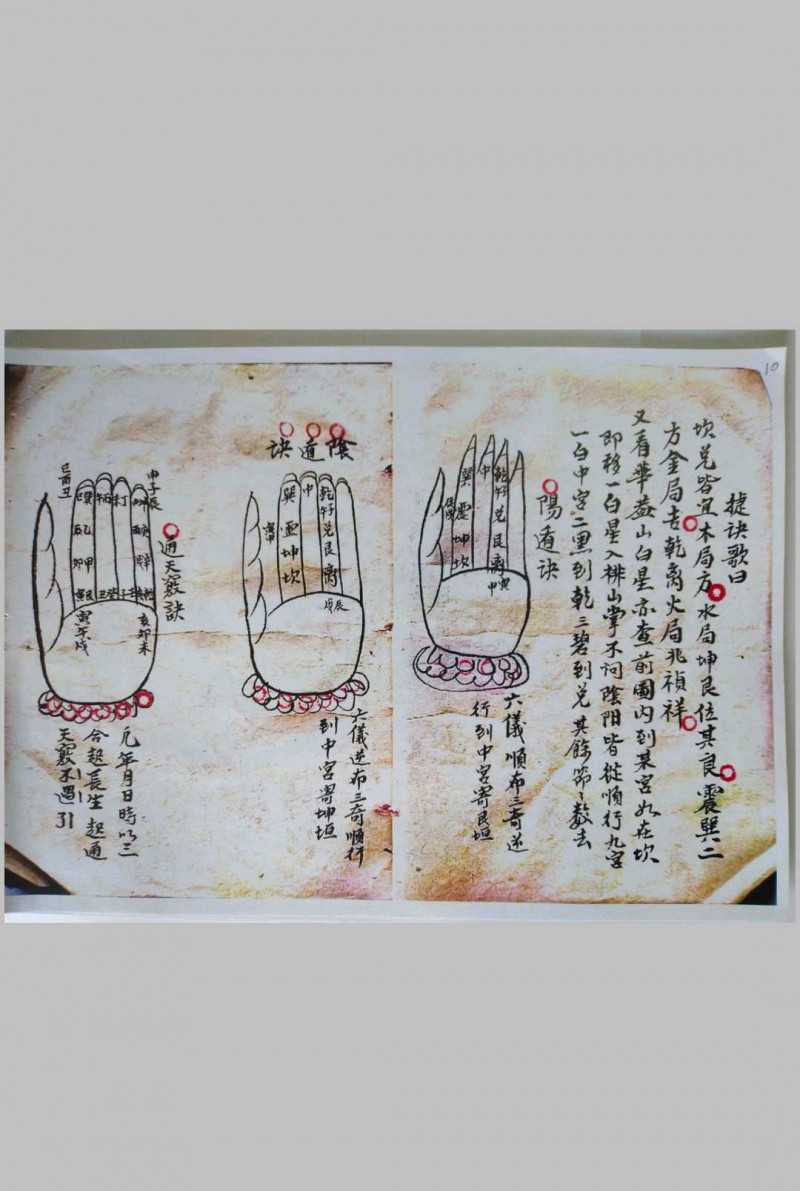 10
捷訣歌曰
坎兌皆宜木局方水局坤艮位其良震巽二
方金局吉乾离火局兆禎祥
又看華蓋山白星亦查前圖內到某宮如在坎
即移一白星入排山掌不问陰阳皆從順行九宮
一白中宮二黑到乾三碧到兌其餘節々数去
陽遁訣
巽
震
坤
坎
中
乾
兌
艮
离
寅
申
六儀順布三奇逆
行到中宮寄艮垣
陰道訣
巽
坤
坎
中
乾
兌
艮
离
辰
戌
六儀逆布三奇順行
到中宮寄坤垣
通天竅訣
申子辰
巳酉丑
巽
巳
乙
辰
甲
卯
艮
寅
午
丙
丁
丑
癸
子
亥卯未
寅午戌
凢年月日時以三
合起長生起通
天竅不遇引